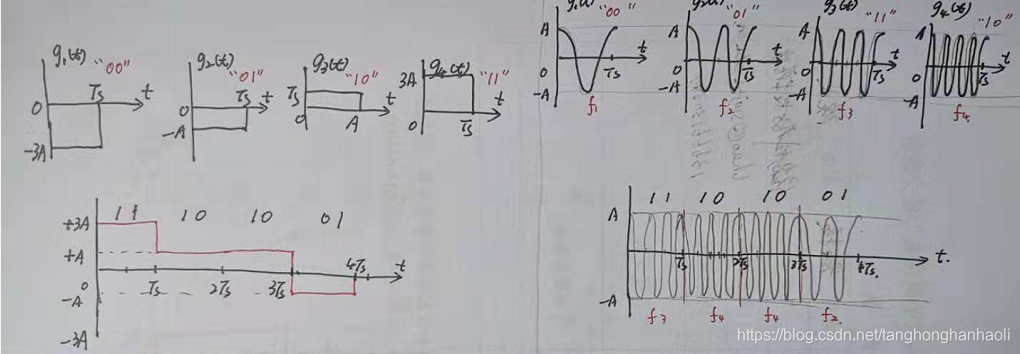 g₁(t) "00"
0 Ts t
-3A
g₂(t) "01"
0 Ts t
-A
g₃(t) "10"
Ts
0 A t
g₄(t) "11"
3A
0 Ts t
11 10 10 01
+3A
+A
0
-A
-3A
Ts 2Ts 3Ts 4Ts t
g₁(t) "00"
A
0 Ts t
-A
f₁
g₂(t) "01"
A
0 Ts t
-A
f₂
g₃(t) "11"
A
0 Ts t
-A
f₃
g₄(t) "10"
A
0 Ts t
-A
f₄.
11 10 10 01
A
Ts 2Ts 3Ts 4Ts. t.
-A
f₃ f₄ f₄ f₂
https://blog.csdn.net/tanghonghanhaoli